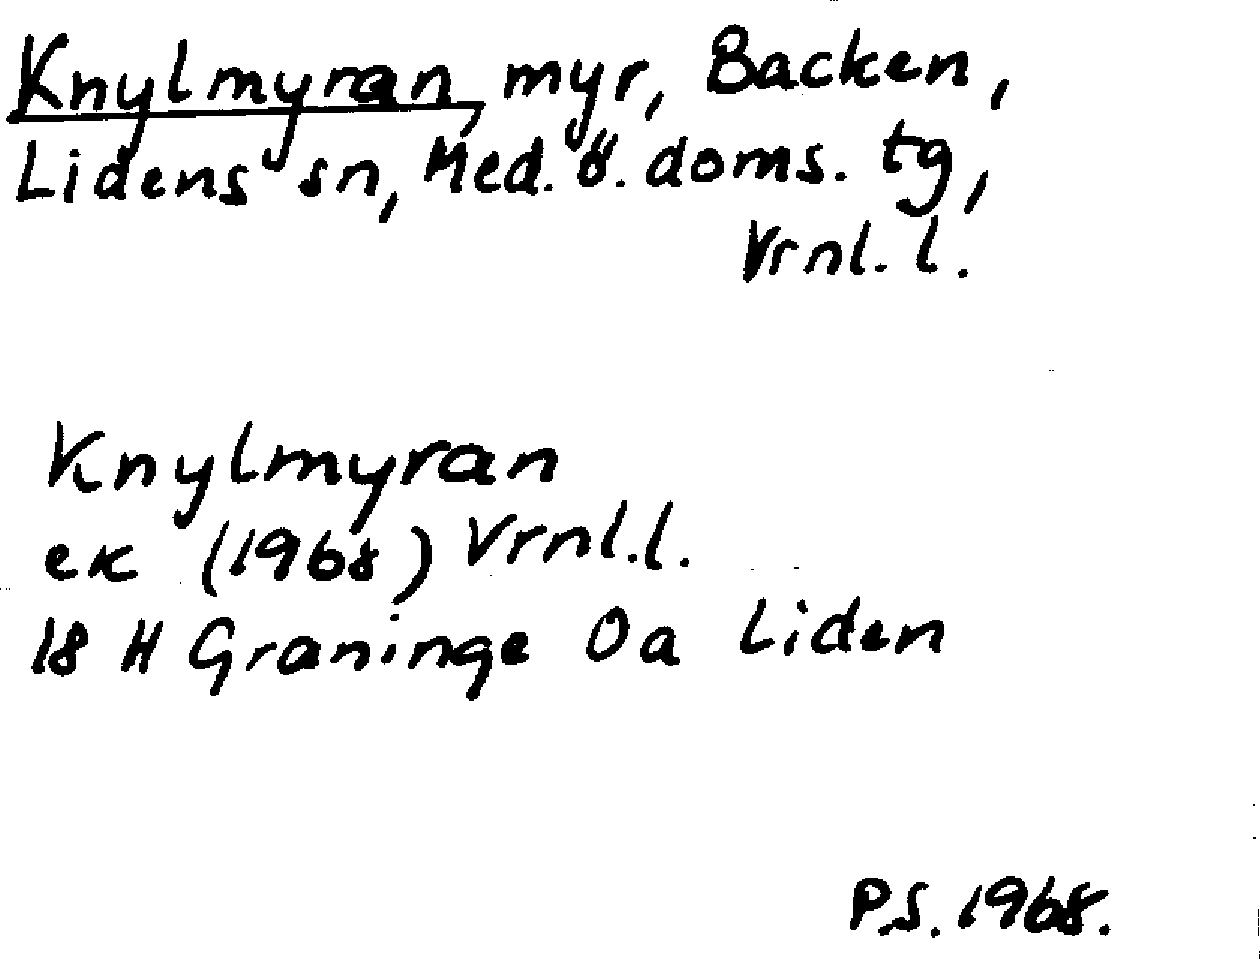 Knylmyran, myr, Backen,
Lidens sn, Med. ö. doms. tg,
Vrnl. l.
Knylmyran
ek (1968) Vrnl.l.
18 H Graninge 0a Liden
P.S. 1968.